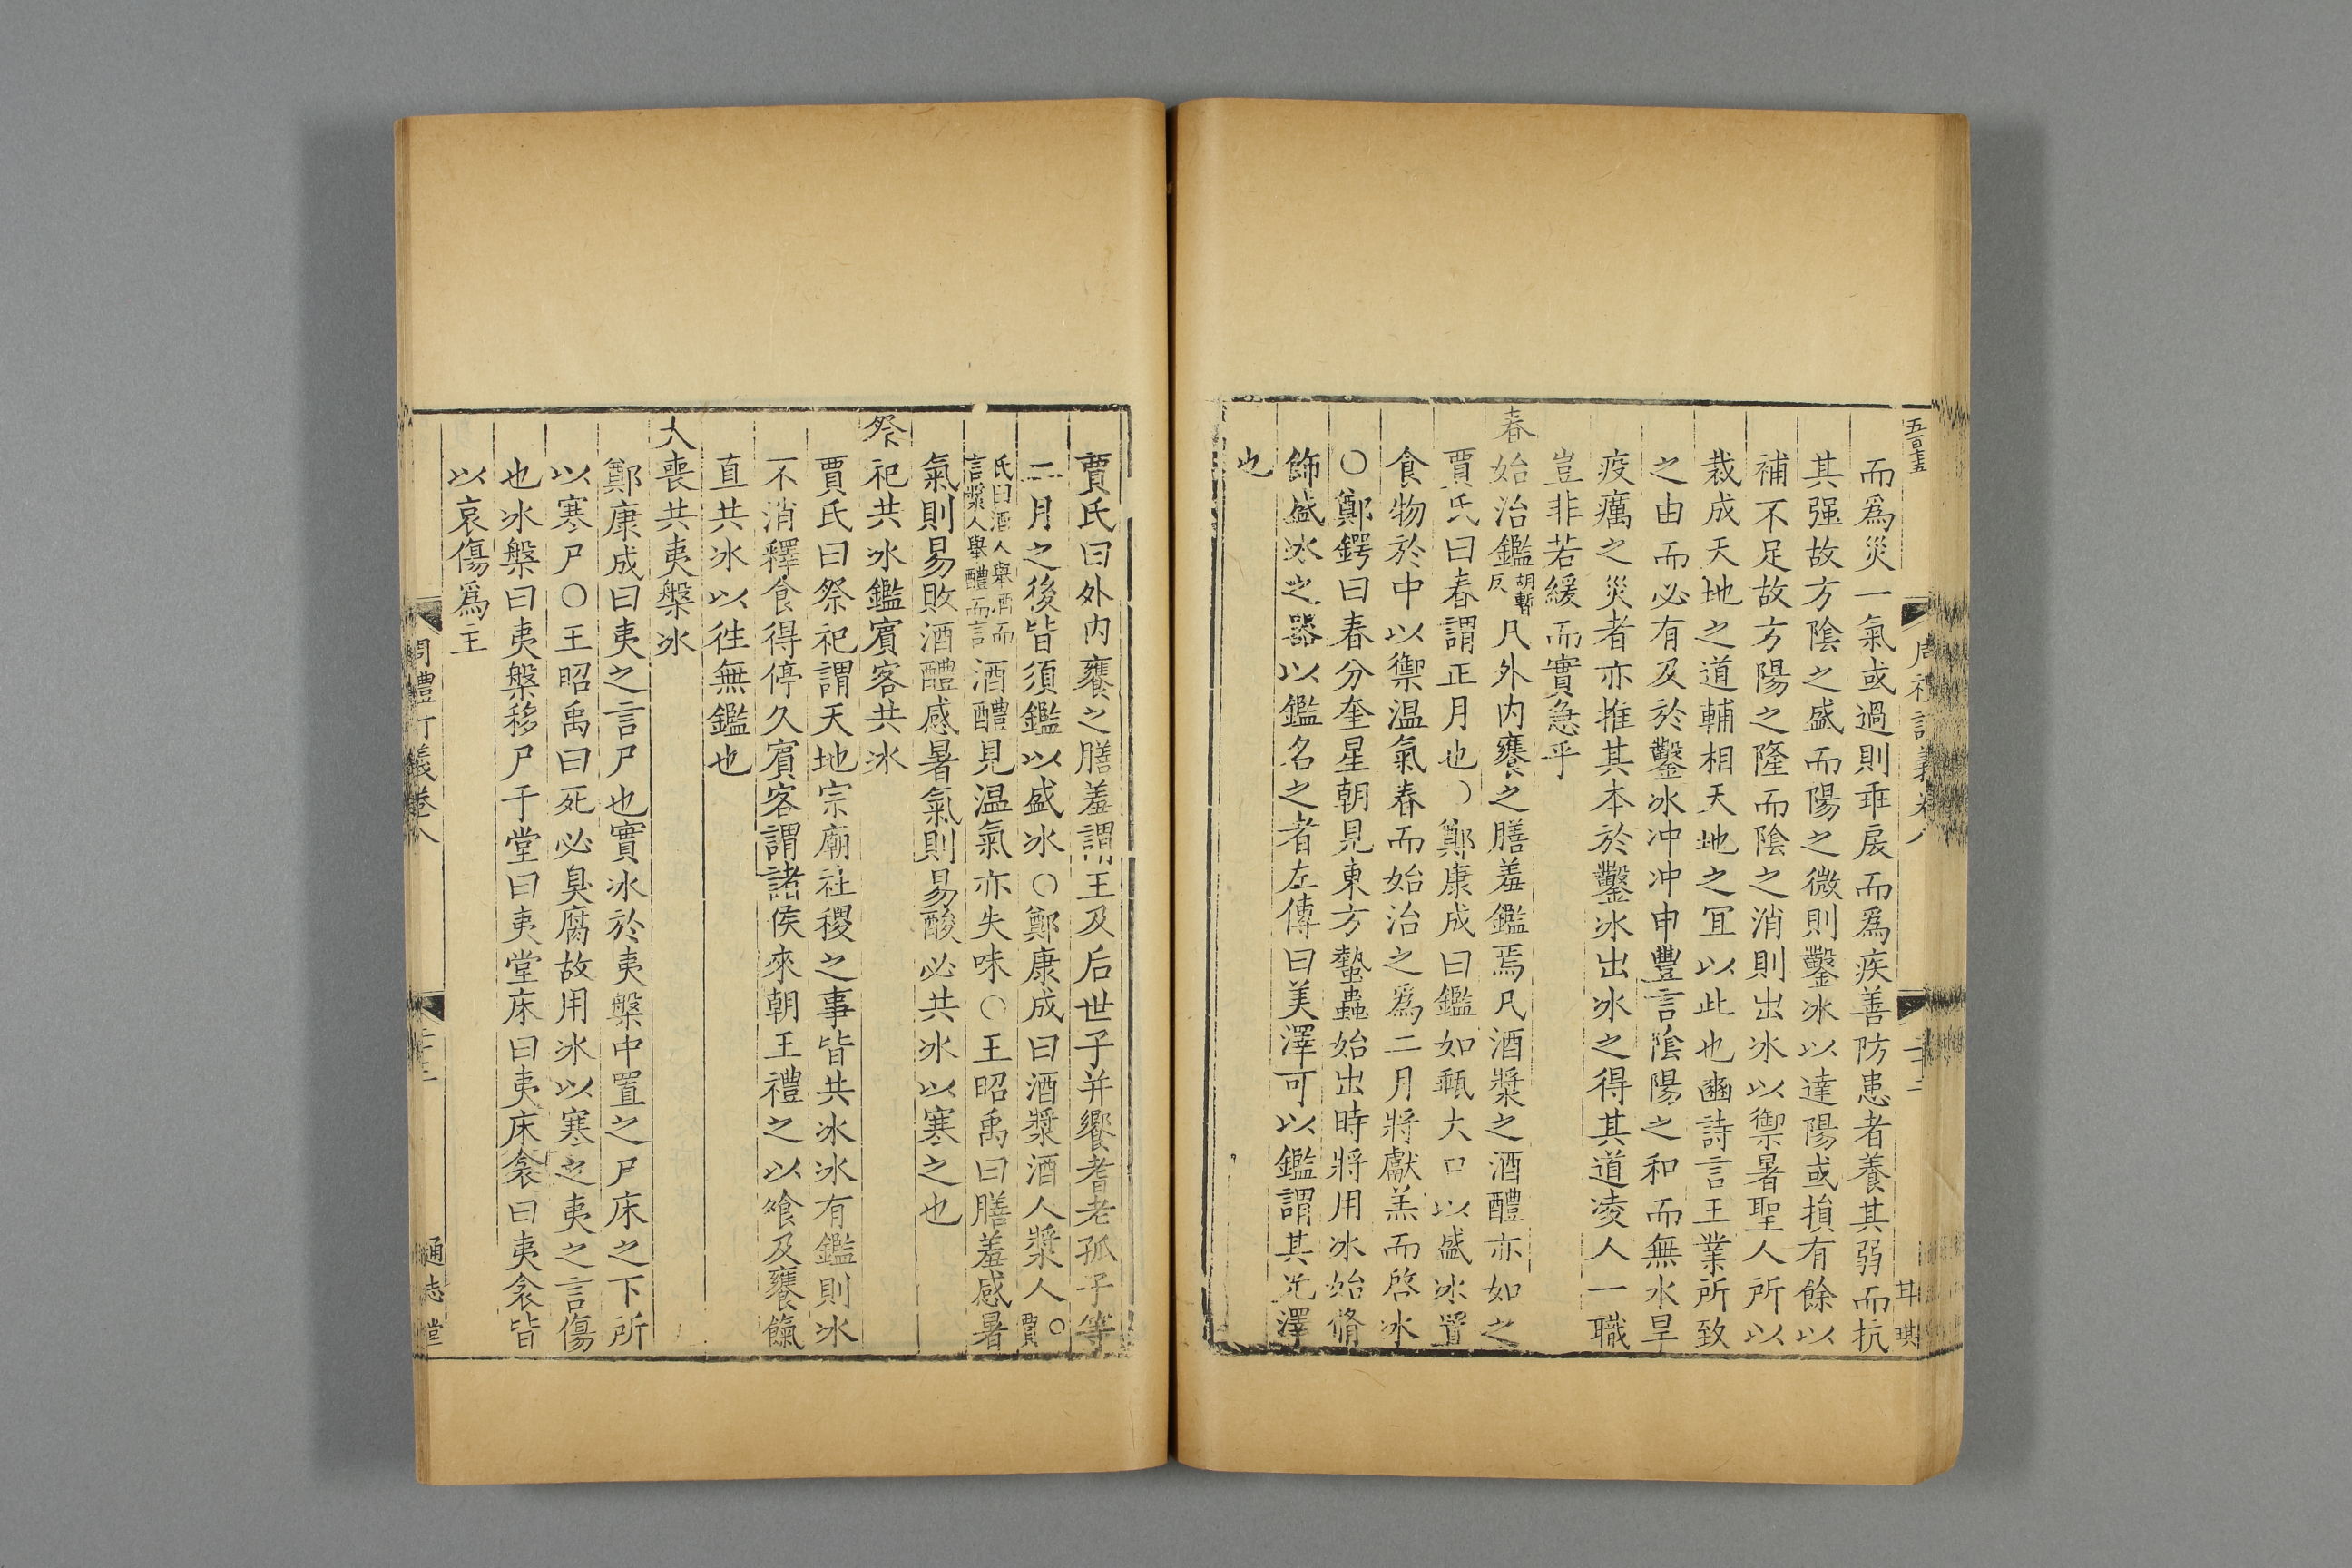 五百七五
周禮訂義卷八
二十二
耳琪
而爲災一氣或過則乖戾而爲疾善防患者養其弱而抗
其强故方陰之盛而陽之微則鑿冰以達陽或損有餘以
補不足故方陽之隆而陰之消則出冰以禦暑聖人所以
裁成天地之道輔相天地之宜以此也豳詩言王業所致
之由而必有及於鑿冰冲冲申豐言陰陽之和而無水旱
疫癘之災者亦推其本於鑿冰出冰之得其道凌人一職
豈非若緩而實急乎
春始治鑑胡暫反凡外内饔之膳羞鑑焉凡酒漿之酒醴亦如之
賈氏曰春謂正月也〇鄭康成曰鑑如甀大口以盛冰置
食物於中以禦温氣春而始治之爲二月將獻羔而啓冰
〇鄭鍔曰春分奎星朝見東方蟄蟲始出時將用冰始脩
飾盛冰之器以鑑名之者左傳曰美澤可以鑑謂其光澤
也
賈氏曰外内饔之膳羞謂王及后世子并饗耆老孤子等
二月之後皆須鑑以盛冰〇鄭康成曰酒漿酒人漿人〇賈
氏曰酒人舉酒而言漿人舉醴而言酒醴見温氣亦失味〇王昭禹曰膳羞感暑
氣則易敗酒醴感暑氣則易酸必共冰以寒之也
祭祀共冰鑑賓客共冰
賈氏曰祭祀謂天地宗廟社稷之事皆共冰冰有鑑則冰
不消釋食得停久賓客謂諸侯來朝王禮之以飧及饔餼
直共冰以徃無鑑也
大喪共夷槃冰
鄭康成曰夷之言尸也實冰於夷槃中置之尸床之下所
以寒尸〇王昭禹曰死必臭腐故用冰以寒之夷之言傷
也冰槃曰夷槃移尸于堂曰夷堂床曰夷床衾曰夷衾皆
以哀傷爲主
周禮訂義卷八
二十三
通志堂